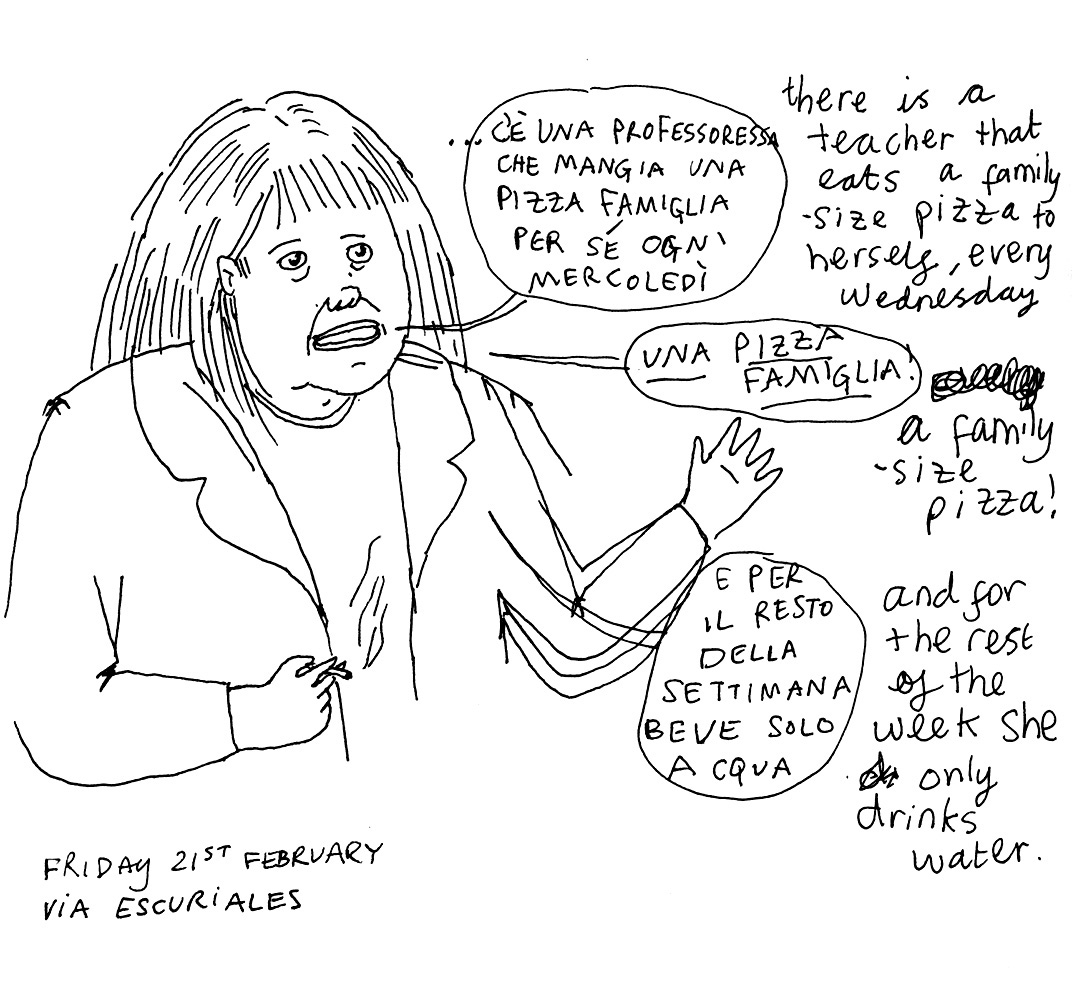 ...C'È UNA PROFESSORESSA
CHE MANGIA UNA
PIZZA FAMIGLIA
PER SÉ OGNI
MERCOLEDÌ
there is a
teacher that
eats a family
-size pizza to
herself, every
Wednesday
UNA PIZZA
FAMIGLIA!
a family
-size
pizza!
E PER
IL RESTO
DELLA
SETTIMANA
BEVE SOLO
ACQUA
and for
the rest
of the
week she
only
drinks
water.
FRIDAY 21ST FEBRUARY
VIA ESCURIALES